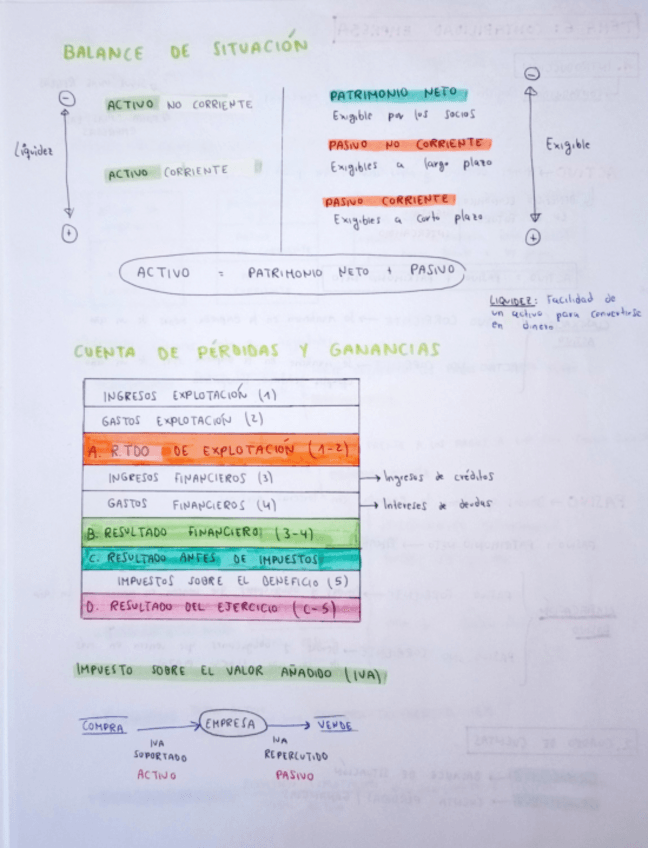 BALANCE DE SITUACIÓN
ACTIVO NO CORRIENTE
ACTIVO CORRIENTE
Liquidez
-
+
PATRIMONIO NETO
Exigible por los socios
PASIVO NO CORRIENTE
Exigibles a largo plazo
PASIVO CORRIENTE
Exigibles a corto plazo
-
Exigible
+
ACTIVO = PATRIMONIO NETO + PASIVO
LIQUIDEZ: Facilidad de
un activo para convertirse
en dinero
CUENTA DE PÉRDIDAS Y GANANCIAS
INGRESOS EXPLOTACIÓN (1)
GASTOS EXPLOTACIÓN (2)
A. RTDO DE EXPLOTACIÓN (1-2)
INGRESOS FINANCIEROS (3) → Ingresos de créditos
GASTOS FINANCIEROS (4) → Intereses de deudas
B. RESULTADO FINANCIERO (3-4)
C. RESULTADO ANTES DE IMPUESTOS
IMPUESTOS SOBRE EL BENEFICIO (5)
D. RESULTADO DEL EJERCICIO (C-5)
IMPUESTO SOBRE EL VALOR AÑADIDO (IVA)
COMPRA → EMPRESA → VENDE
IVA
SOPORTADO
ACTIVO
IVA
REPERCUTIDO
PASIVO